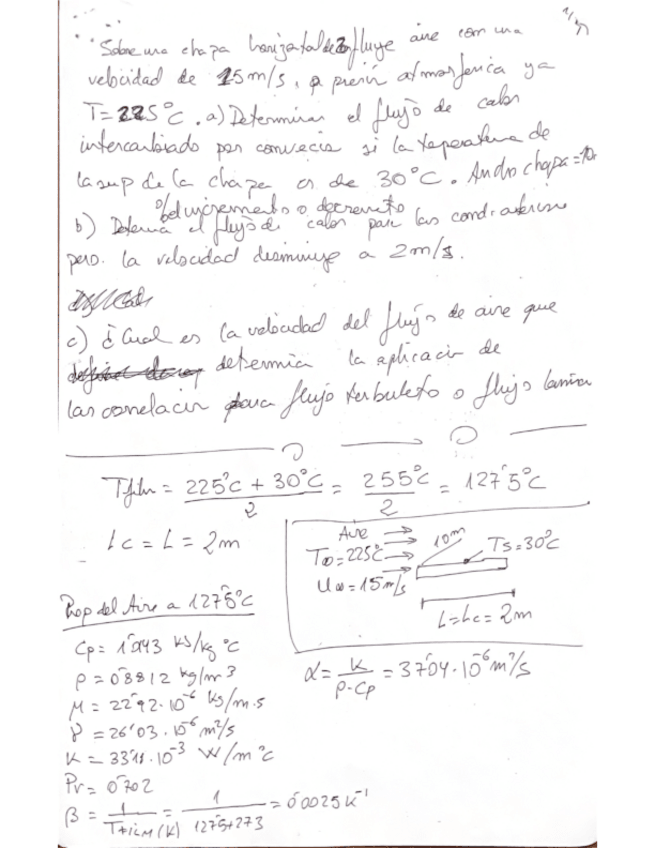 1/5
Sobre una chapa horizontal de 2m fluye aire con una
velocidad de 15m/s, a presión atmosferica y a
T=225°C. a) Determinar el flujo de calor
intercambiado por convección si la temperatura de
la sup de la chapa es de 30°C. Ancho chapa=10m
% del incremento o decremento
b) Determina el flujo de calor para las cond. anteriores
pero la velocidad disminuye a 2m/s.
c) ¿Cual es la velocidad del flujo de aire que
determina la aplicación de
las correlación para flujo turbulento o flujo laminar
Tfilm = 225°C + 30°C / 2 = 255°C / 2 = 127'5°C
Lc = L = 2m
Aire
T∞=225°C
U∞=15m/s
10m
Ts=30°C
L=Lc=2m
Prop del Aire a 127'5°C
Cp= 1'0143 KJ/kg °C
ρ = 0'8812 kg/m³
μ = 22'92·10⁻⁶ Kg/m·s
γ = 26'03·10⁻⁶ m²/s
K = 33'11·10⁻³ W/m°C
Pr= 0'702
β = 1/TFILM(K) = 1/127'5+273 = 0'0025 K⁻¹
α = K/ρ·Cp = 37'04·10⁻⁶ m²/s